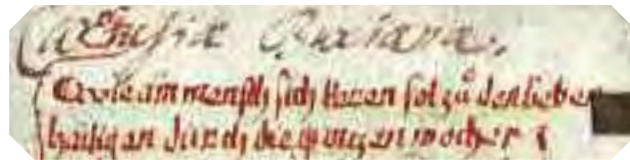 Cartusiæ Buxianæ.
Wie ain mensch sich keren sol zů den lieben
hailigen durch die gantzen wochen